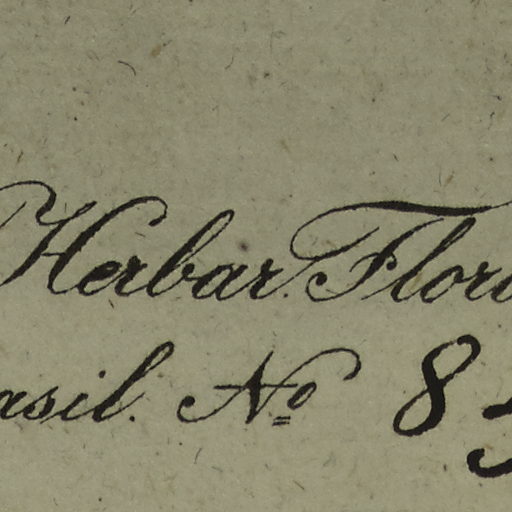 Herbar. Flori
asil. No 8